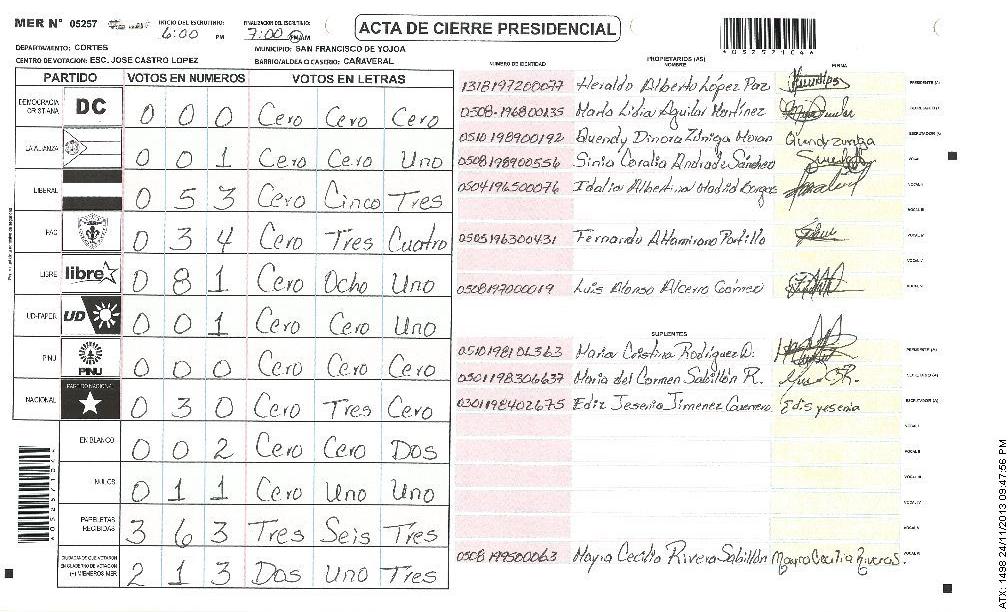 MER N° 05257 INICIO DEL ESCRUTINIO: 6:00 PM FINALIZACION DEL ESCRUTINIO: 7:00 PM AM
ACTA DE CIERRE PRESIDENCIAL
DEPARTAMENTO: CORTES MUNICIPIO: SAN FRANCISCO DE YOJOA
CENTRO DE VOTACION: ESC. JOSE CASTRO LOPEZ BARRIO/ALDEA O CASERIO: CAÑAVERAL
PARTIDO VOTOS EN NUMEROS VOTOS EN LETRAS
DEMOCRACIA CRISTIANA DC 0 0 0 Cero Cero Cero
LA ALIANZA 0 0 1 Cero Cero Uno
LIBERAL 0 5 3 Cero Cinco Tres
PAC 0 3 4 Cero Tres Cuatro
LIBRE libre 0 8 1 Cero Ocho Uno
UD-FAPER UD 0 0 1 Cero Cero Uno
PINU PINU 0 0 0 Cero Cero Cero
NACIONAL PARTIDO NACIONAL 0 3 0 Cero Tres Cero
EN BLANCO 0 0 2 Cero Cero Dos
NULOS 0 1 1 Cero Uno Uno
PAPELETAS RECIBIDAS 3 6 3 Tres Seis Tres
CIUDADANOS QUE VOTARON EN CUADERNO DE VOTACION (+) MIEMBROS MER 2 1 3 Dos Uno Tres
PROPIETARIOS (AS)
NUMERO DE IDENTIDAD NOMBRE FIRMA
1318197200077 Heraldo Alberto López Paz PRESIDENTE (A)
0508-196800135 Marta Lidia Aguilar Martínez SECRETARIO (A)
0510198900192 Quendy Dinora Zúniga Moran ESCRUTADOR (A)
0508198900556 Sinia Coralia Andrade Sánchez VOCAL I
0504196500076 Idalia Albertina Madrid Vargas VOCAL II
VOCAL III
0505196300431 Fernando Altamirano Portillo VOCAL IV
VOCAL V
0508197000019 Luis Alonso Alcerro Gómez VOCAL VI
SUPLENTES
0510198101363 Maria Cristina Rodríguez O. PRESIDENTE (A)
0501198306637 Maria del Carmen Sabillón R. SECRETARIO (A)
0301198402675 Ediz Jesenia Jimenez Guerrero Edis yesenia ESCRUTADOR (A)
VOCAL I
VOCAL II
VOCAL III
VOCAL IV
VOCAL V
0508199500063 Mayra Cecilia Rivera Sabillón Mayra Cecilia Riveras. VOCAL VI
A052571044
ATX: 1498 24/11/2013 09:47:56 PM